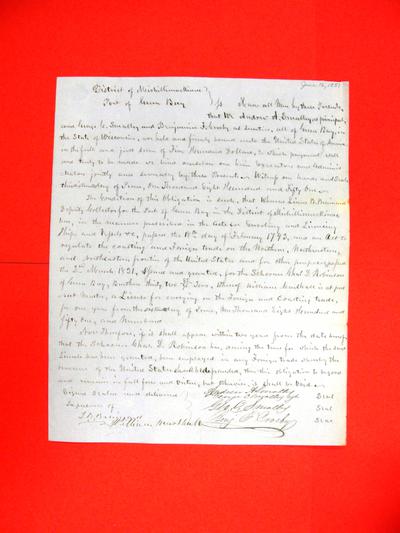 June 16, 1851
District of Michilimackinac
Port of Green Bay } ss Know all Men by these Presents,
that We Andrew A. Smalley as principal,
and George C. Smalley and Benjamin F. Crosby as sureties, all of Green Bay, in
the State of Wisconsin, are held and firmly bound unto the United States of America
in the full and just sum of Five Hundred Dollars, to which payment well
and truly to be made we bind ourselves our heirs executors and adminis
trators jointly and severally by these Presents. Witness our hands and Seals
this day of June, One Thousand Eight Hundred and Fifty One.
The Condition of this Obligation is such, that Whereas
Deputy Collector for the Port of Green Bay in the District of Michilimackinac
has, in the manner prescribed in the Acts for Enrolling and Licensing
Ships and Vessels &c, passed the 18th day of February 1793, and an Act to
regulate the coasting and Foreign trade on the Northern, Northeastern,
and Northwestern frontier of the United States and for other purposes passed
the 2nd March 1831, Issued and granted, for the Schooner Chas. D. Robinson
of Green Bay, Burthen thirty two Tons, whereof William is at pre
sent Master, a License for carrying on the Foreign and Coasting trade,
for one year from the day of June, One Thousand Eight Hundred and
Fifty, One, and Numbered
Now Therefore, if it shall appear within two years from the date hereof
that the Schooner Chas. D. Robinson has, during the time for which the said
License has been granted, been employed in any Foreign trade whereby the
revenue of the United States shall be defrauded, then this obligation to be good
and remain in full force and virtue, but otherwise it shall be Void.
Signed Sealed and delivered
in presence of
Andrew A. Smalley Seal
Geo. C. Smalley Seal
Benj. F. Crosby Seal
William